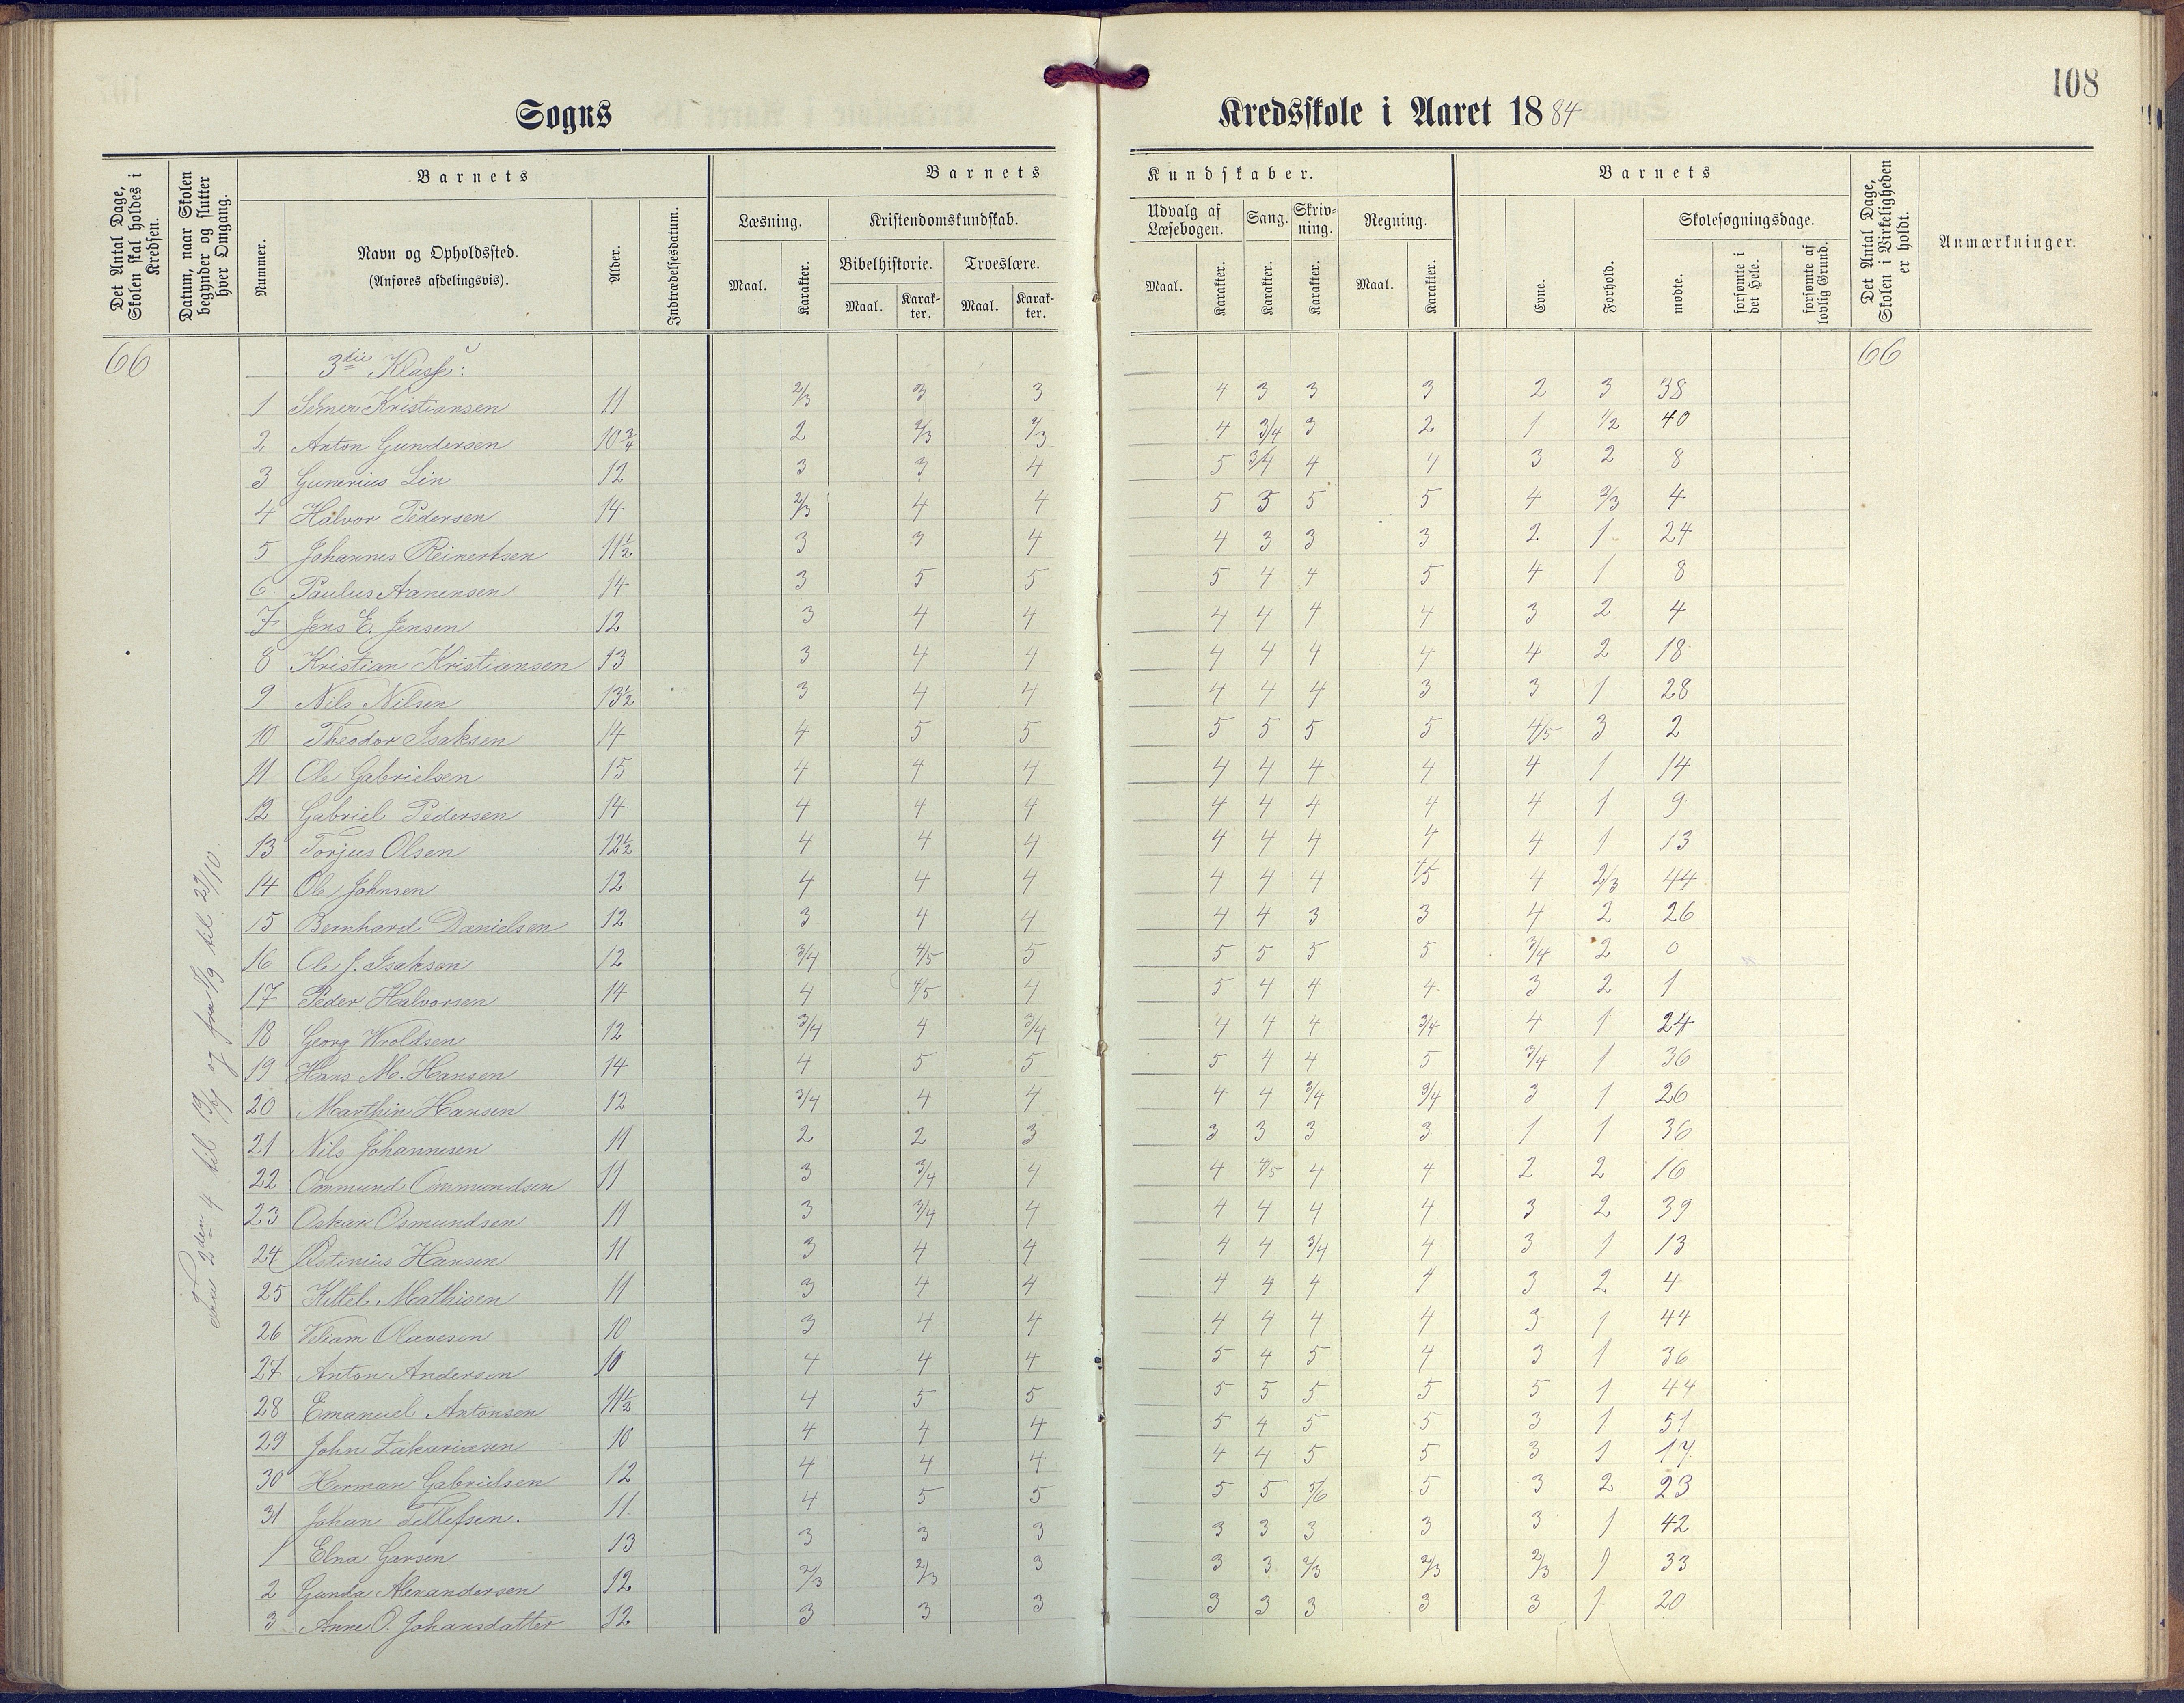 108
Sogns Kredsskole i Aaret 1884
Det Antal Dage, Skolen skal holdes i Kredsen.
Datum, naar Skolen begynder og slutter hver Omgang.
Barnets
Nummer.
Navn og Opholdssted.
(Anføres afdelingsvis).
Alder.
Indtrædelsesdatum.
Barnets Kundskaber.
Læsning. Maal. Karakter.
Kristendomskundskab.
Bibelhistorie. Maal. Karakter.
Troeslære. Maal. Karakter.
Udvalg af Læsebogen. Maal. Karakter.
Sang. Karakter.
Skrivning. Karakter.
Regning. Maal. Karakter.
Barnets
Evne.
Forhold.
Skolesøgningsdage.
mødte.
forsømte i det Hele.
forsømte af lovlig Grund.
Det Antal Dage, Skolen i Virkeligheden er holdt.
Anmærkninger.
66 3die Klasse: 66
1 Kristiansen 11 2/3 3 3 4 3 3 3 2 3 38
2 Anton Gundersen 10 3/4 2 2/3 2/3 4 3/4 3 2 1 1/2 40
3 Gunerius Lin 12 3 3 4 5 3/4 4 4 3 2 8
4 Halvor Pedersen 14 2/3 4 4 5 3 5 5 4 2/3 4
5 Johannes Reinertsen 11 1/2 3 3 4 4 3 3 3 2 1 24
6 Paulus Aanensen 14 3 5 5 5 4 4 5 4 1 8
7 Jens E. Jensen 12 3 4 4 4 4 4 4 3 2 4
8 Kristian Kristiansen 13 3 4 4 4 4 4 4 4 2 18
9 Nils Nilsen 13 1/2 3 4 4 4 4 4 3 3 1 28
10 Theodor Isaksen 14 4 5 5 5 5 5 5 4/5 3 2
11 Ole Gabrielsen 15 4 4 4 4 4 4 4 4 1 14
12 Gabriel Pedersen 14 4 4 4 4 4 4 4 4 1 9
13 Torjus Olsen 12 1/2 4 4 4 4 4 4 4 4 1 13
14 Ole Johnsen 12 4 4 4 4 4 4 4/5 4 2/3 44
15 Bernhard Danielsen 12 3 4 4 4 4 3 3 4 2 26
16 Ole J. Isaksen 12 3/4 4/5 5 5 5 5 5 3/4 2 0
17 Peder Halvorsen 14 4 4/5 4 5 4 4 4 3 2 1
18 Georg Wroldsen 12 3/4 4 3/4 4 4 4 3/4 4 1 24
19 Hans M. Hansen 14 4 5 5 5 4 4 5 3/4 1 36
20 Marthin Hansen 12 3/4 4 4 4 4 3/4 3/4 3 1 26
21 Nils Johannesen 11 2 2 3 3 3 3 3 1 1 36
22 Ommund Ommundsen 11 3 3/4 4 4 4/5 4 4 2 2 16
23 Oskar Osmundsen 11 3 3/4 4 4 4 4 4 3 2 39
24 Hansen 11 3 4 4 4 4 3/4 4 3 1 13
25 Kittel Mathisen 11 3 4 4 4 4 4 4 3 2 4
26 Viliam Olavesen 10 3 4 4 4 4 4 4 3 1 44
27 Anton Andersen 10 4 4 4 5 4 5 4 3 1 36
28 Emanuel Antonsen 11 1/2 4 5 5 5 5 5 5 5 1 44
29 John Zakariasen 10 4 4 4 5 4 5 5 3 1 51
30 Herman Gabrielsen 12 4 4 4 4 4 5 5 3 1 17
31 Johan Tellefsen. 11. 4 5 5 5 5 5/6 5 3 2 23
1 Elna Garsen 13 3 3 3 3 3 3 3 3 1 42
2 Gunda Alexandersen 12 2/3 2/3 3 3 3 2/3 2/3 2/3 1 33
3 Anne O. Johansdatter 12 3 3 3 3 3 3 3 3 1 20
Fra 2den 4 til og fra til 23/10.